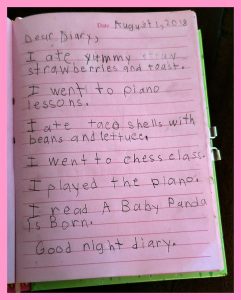 Date August 1, 2018
Dear Diary,
I ate yummy
strawberries and toast.
I went to piano
lessons.
I ate taco shells with
beans and lettuce.
I went to chess class.
I played the piano.
I read A Baby Panda
Is Born.
Good night diary.